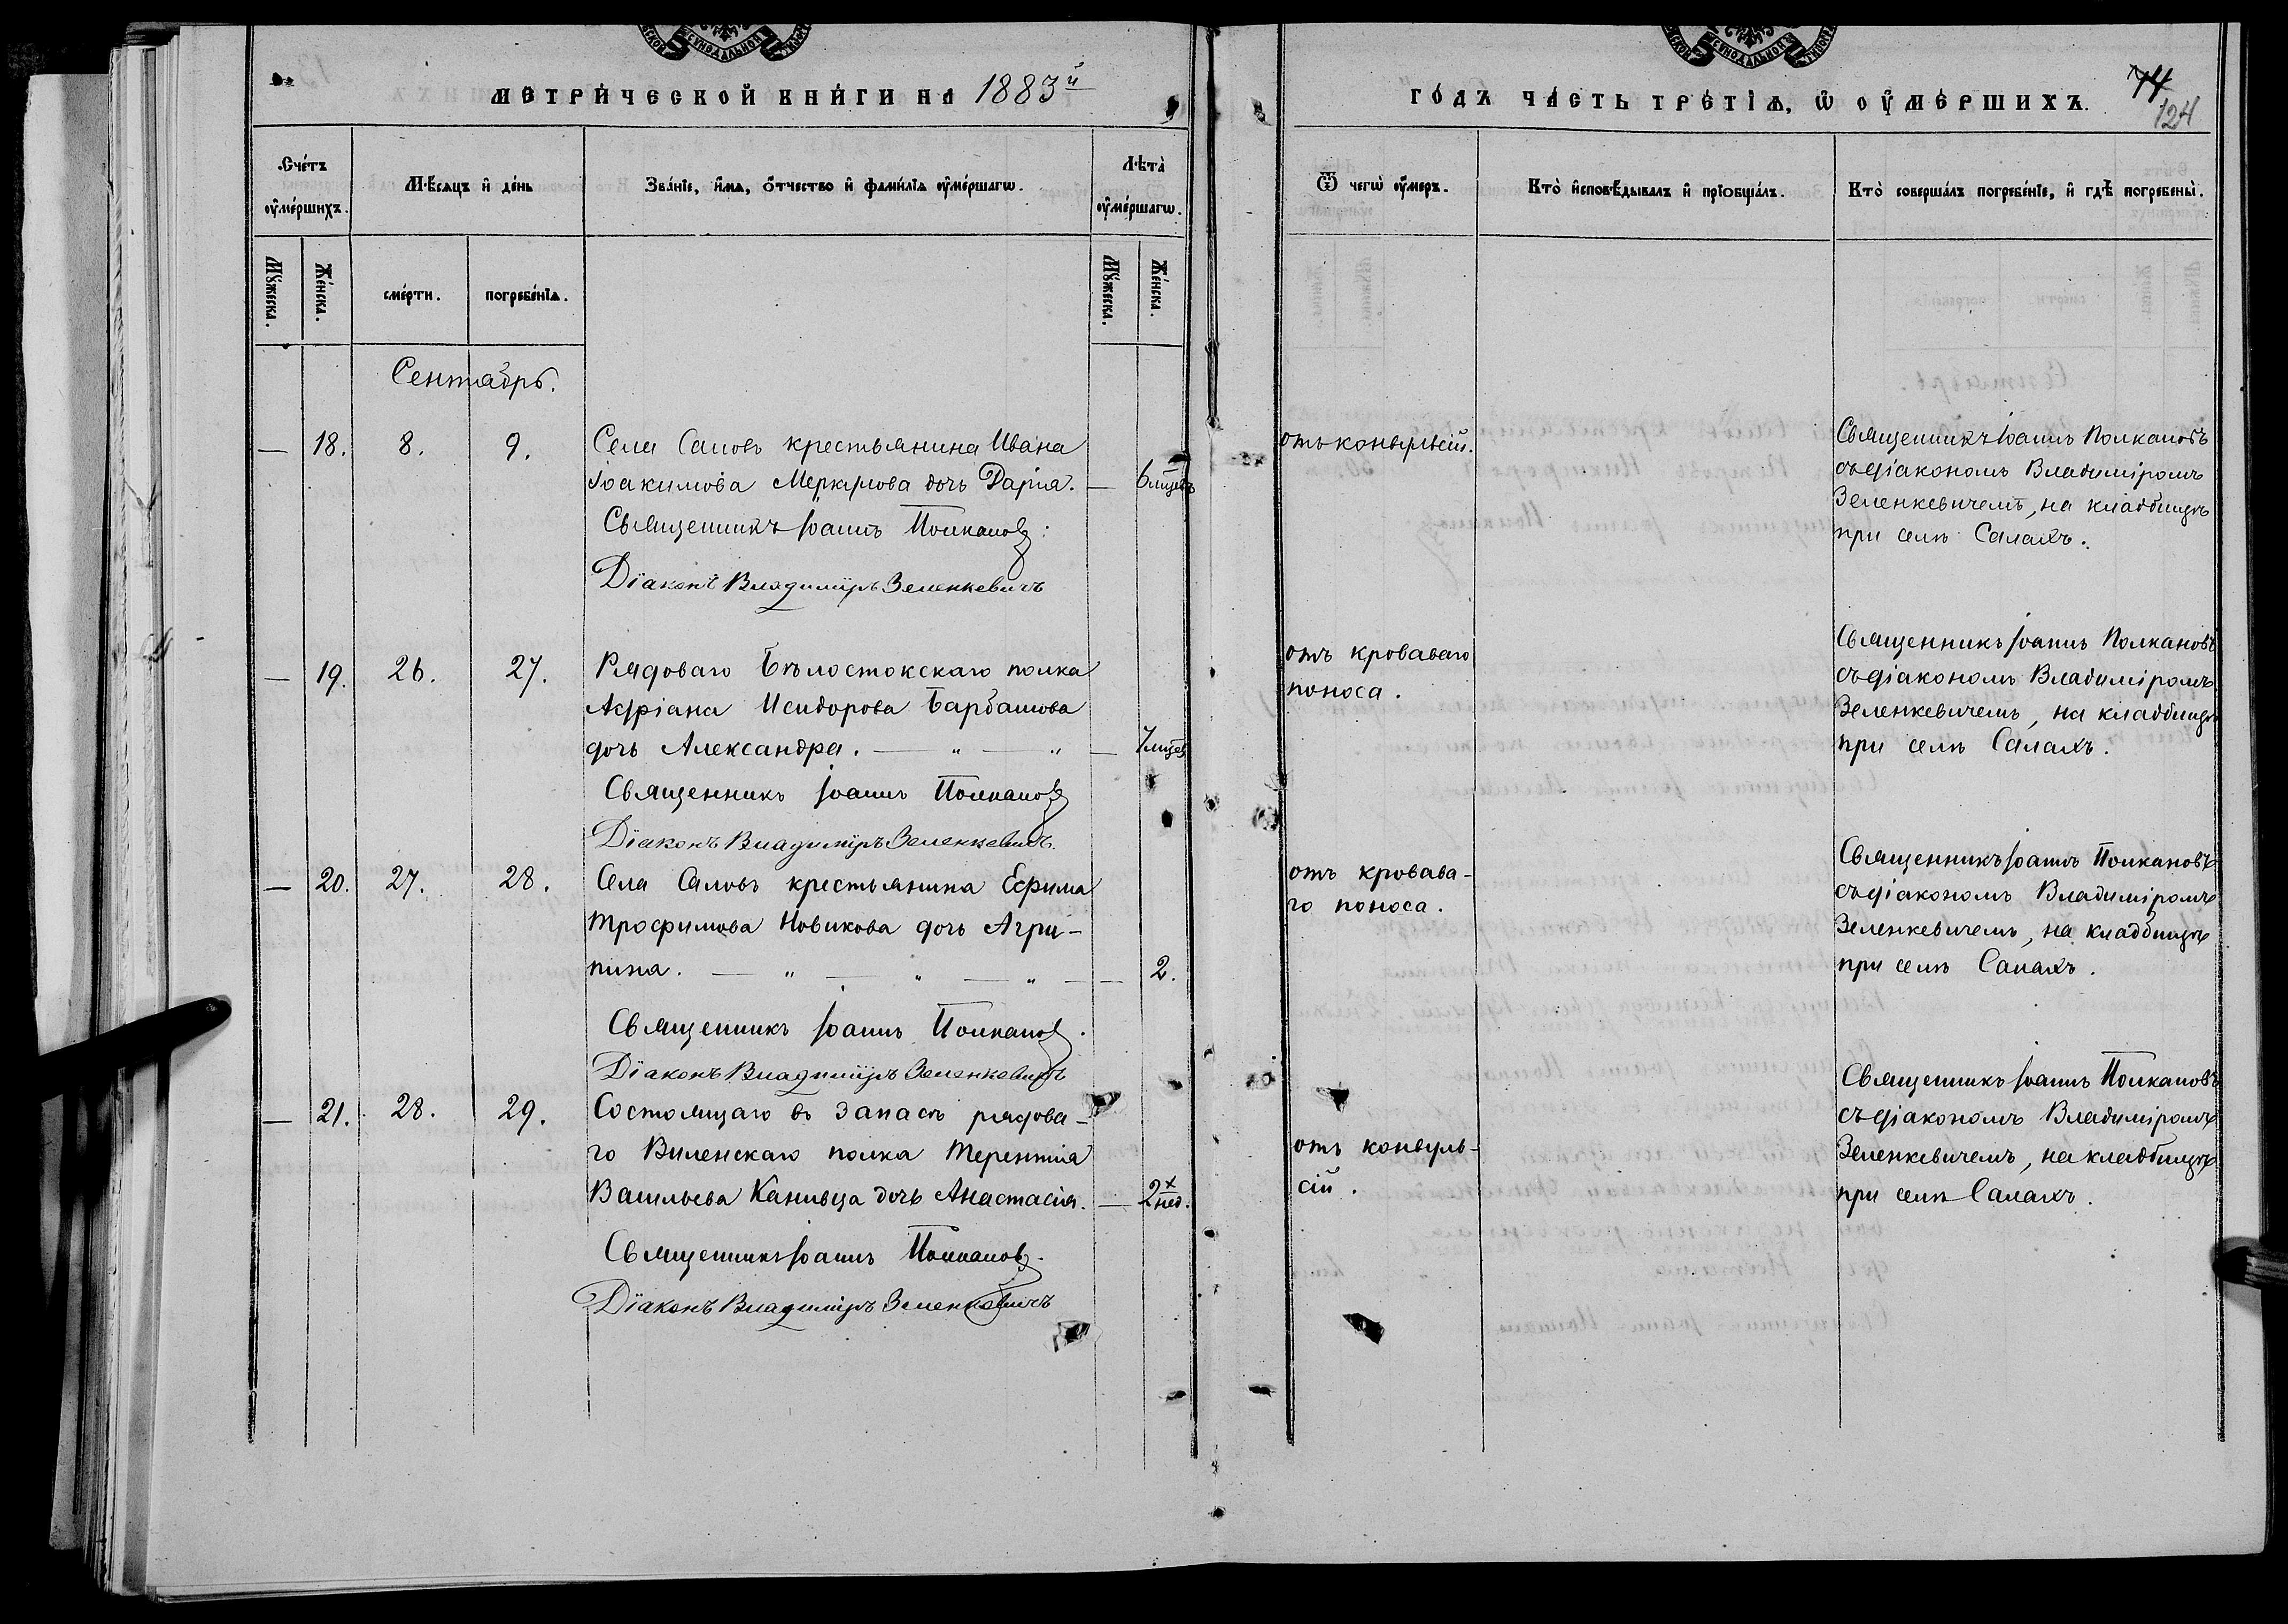 СѴНОДАЛЬНОЙ
СѴНОДАЛЬНОЙ
МЕТРИ́ЧЕСКОЙ КНИ́ГИ НА 1883й
ГО́ДЪ ЧА́СТЬ ТРЕ́ТІѦ, Ѡ҆ ОУ҆МЕ́РШИХЪ.
74
124
Счéтъ оу҆мéршихъ.
Мѣ́сяцъ и҆ де́нь
Зва́нїе, и҆́мѧ, ѻ҆́тчество и҆ фами́лїѧ оу҆ме́ршагѡ.
Лѣта̀ оу҆ме́ршагѡ.
Ѿ чегѡ̀ оу҆́меръ.
Кто̀ и҆сповѣ́дывалъ и҆ прїѡбща́лъ.
Кто̀ соверша́лъ погребе́нїе, и҆ гдѣ̀ погребены̀.
Мꙋ́жеска.
Же́нска.
сме́рти.
погребе́нїѧ.
Мꙋ́жеска.
Же́нска.
Сентябрь.
— 18. 8. 9.
Села Саловъ крестьянина Ивана
Іоакимова Меркулова дочь Дарія. — 6 мцевъ
Священникъ Іоаннъ Полкановъ:
Діаконъ Владиміръ Зеленкевичъ
отъ конвульсій.
Священникъ Іоаннъ Полкановъ
съ діакономъ Владиміромъ
Зеленкевичемъ, на кладбищѣ
при селѣ Салахъ.
— 19. 26. 27.
Рядоваго Бѣлостокскаго полка
Адріана Исидорова Барбашова
дочь Александра. — „ — „ — 7 мцев
Священникъ Іоаннъ Полкановъ
Діаконъ Владиміръ Зеленкевичъ
отъ кроваваго
поноса.
Священникъ Іоаннъ Полкановъ
съ діакономъ Владиміромъ
Зеленкевичемъ, на кладбищѣ
при селѣ Салахъ.
— 20. 27. 28.
Села Саловъ крестьянина Ефима
Трофимова Новикова дочь Агри-
пина. — „ — „ — „ — — 2.
Священникъ Іоаннъ Полкановъ.
Діаконъ Владиміръ Зеленкевичъ
отъ кровава-
го поноса.
Священникъ Іоаннъ Полкановъ
съ діакономъ Владиміромъ
Зеленкевичемъ, на кладбищѣ
при селѣ Салахъ.
— 21. 28. 29.
Состоящаго въ запасѣ рядова-
го Виленскаго полка Терентія
Васильева Канивца дочь Анастасія. — 2х нед.
Священникъ Іоаннъ Полкановъ.
Діаконъ Владиміръ Зеленкевичъ
отъ конвуль-
сій.
Священникъ Іоаннъ Полкановъ
съ діакономъ Владиміромъ
Зеленкевичемъ, на кладбищѣ
при селѣ Салахъ.